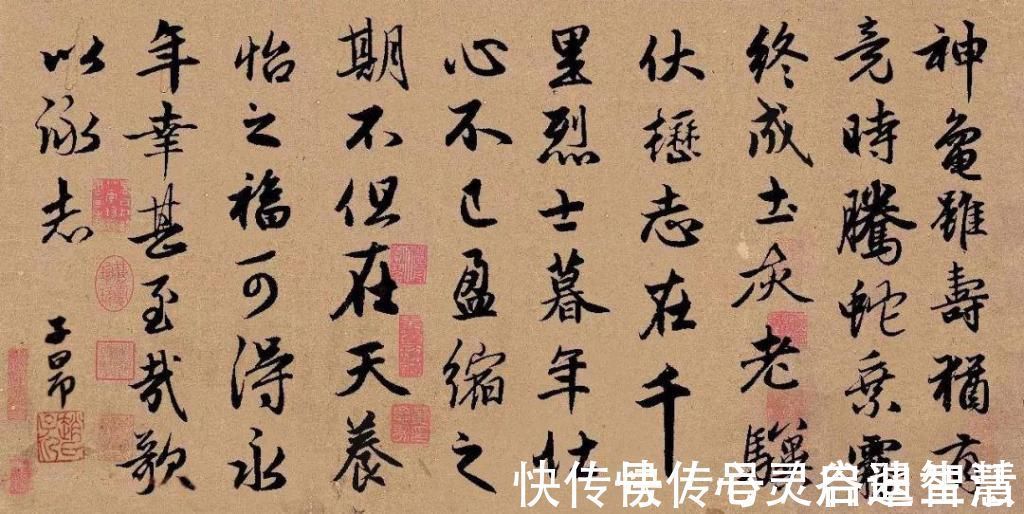 神龜雖壽猶有
竟時騰蛇乗霧
終成土灰老驥
伏櫪志在千
里烈士暮年壮
心不已盈縮之
期不但在天養
怡之福可得永
年幸甚至哉歌
以詠志
子昂
趙氏子昂
快传号